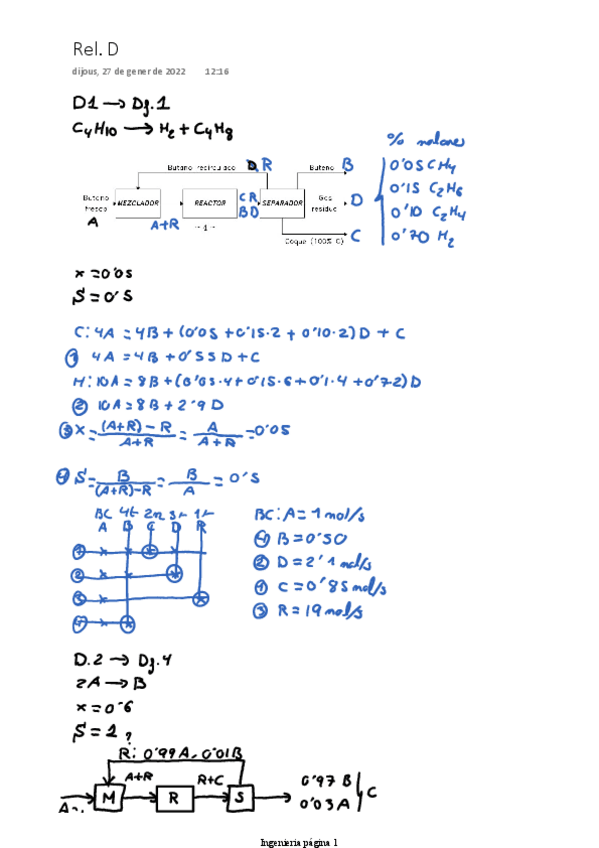 Rel. D
dijous, 27 de gener de 2022 12:16
D1 → Dj.1
C4H10 → H2 + C4H8
% molares
Butano recirculado R
Buteno B
0'05 CH4
0'15 C2H6
0'10 C2H4
0'70 H2
Butano fresco
A
MEZCLADOR
A+R
REACTOR
- 1 -
C R
B D
SEPARADOR
Gas residue
D
Coque (100% C) C
x = 0'05
S = 0'5
C: 4A = 4B + (0'05 + 0'15·2 + 0'10·2) D + C
① 4A = 4B + 0'55 D + C
H: 10A = 8B + (0'05·4 + 0'15·6 + 0'1·4 + 0'7·2) D
② 10A = 8B + 2'9 D
③ x = (A+R) - R / A+R = A / A+R = 0'05
④ S = B / (A+R)-R = B / A = 0'5
BC 4t 2n 3r 1r
A B C D R
①
②
③
④
BC: A = 1 mol/s
④ B = 0'50
② D = 2'1 mol/s
① C = 0'85 mol/s
③ R = 19 mol/s
D.2 → Dj.4
2A → B
x = 0'6
S = 1 ?
R: 0'99 A, 0'01 B
A
M
A+R
R
R+C
S
0'97 B
0'03 A
C
Ingenieria página 1